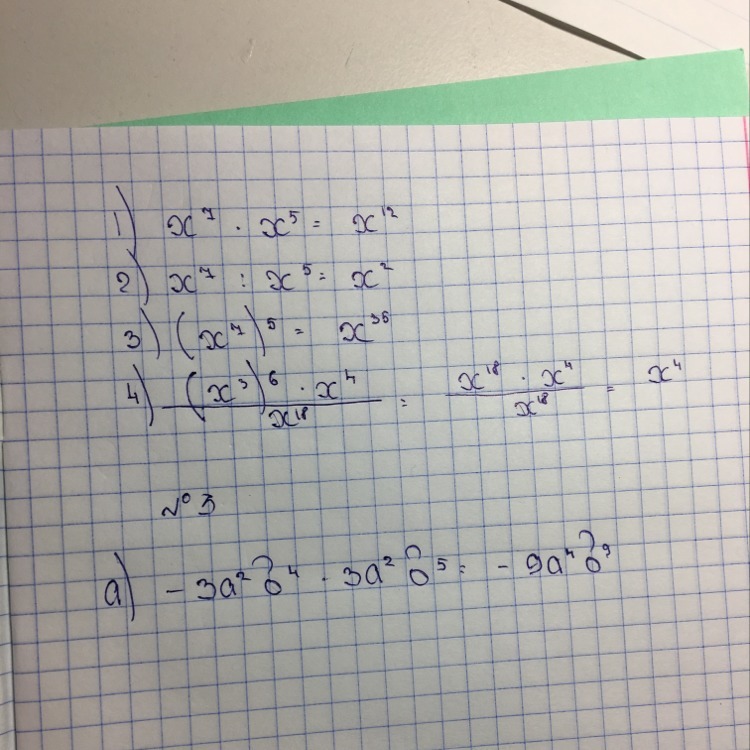 1) x⁷ · x⁵ = x¹²
2) x⁷ : x⁵ = x²
3) (x⁷)⁵ = x³⁵
4) (x³)⁶ · x⁴ / x¹⁸ = x¹⁸ · x⁴ / x¹⁸ = x⁴
№ 3
а) - 3a²b⁴ · 3a²b⁵ = - 9a⁴b⁹